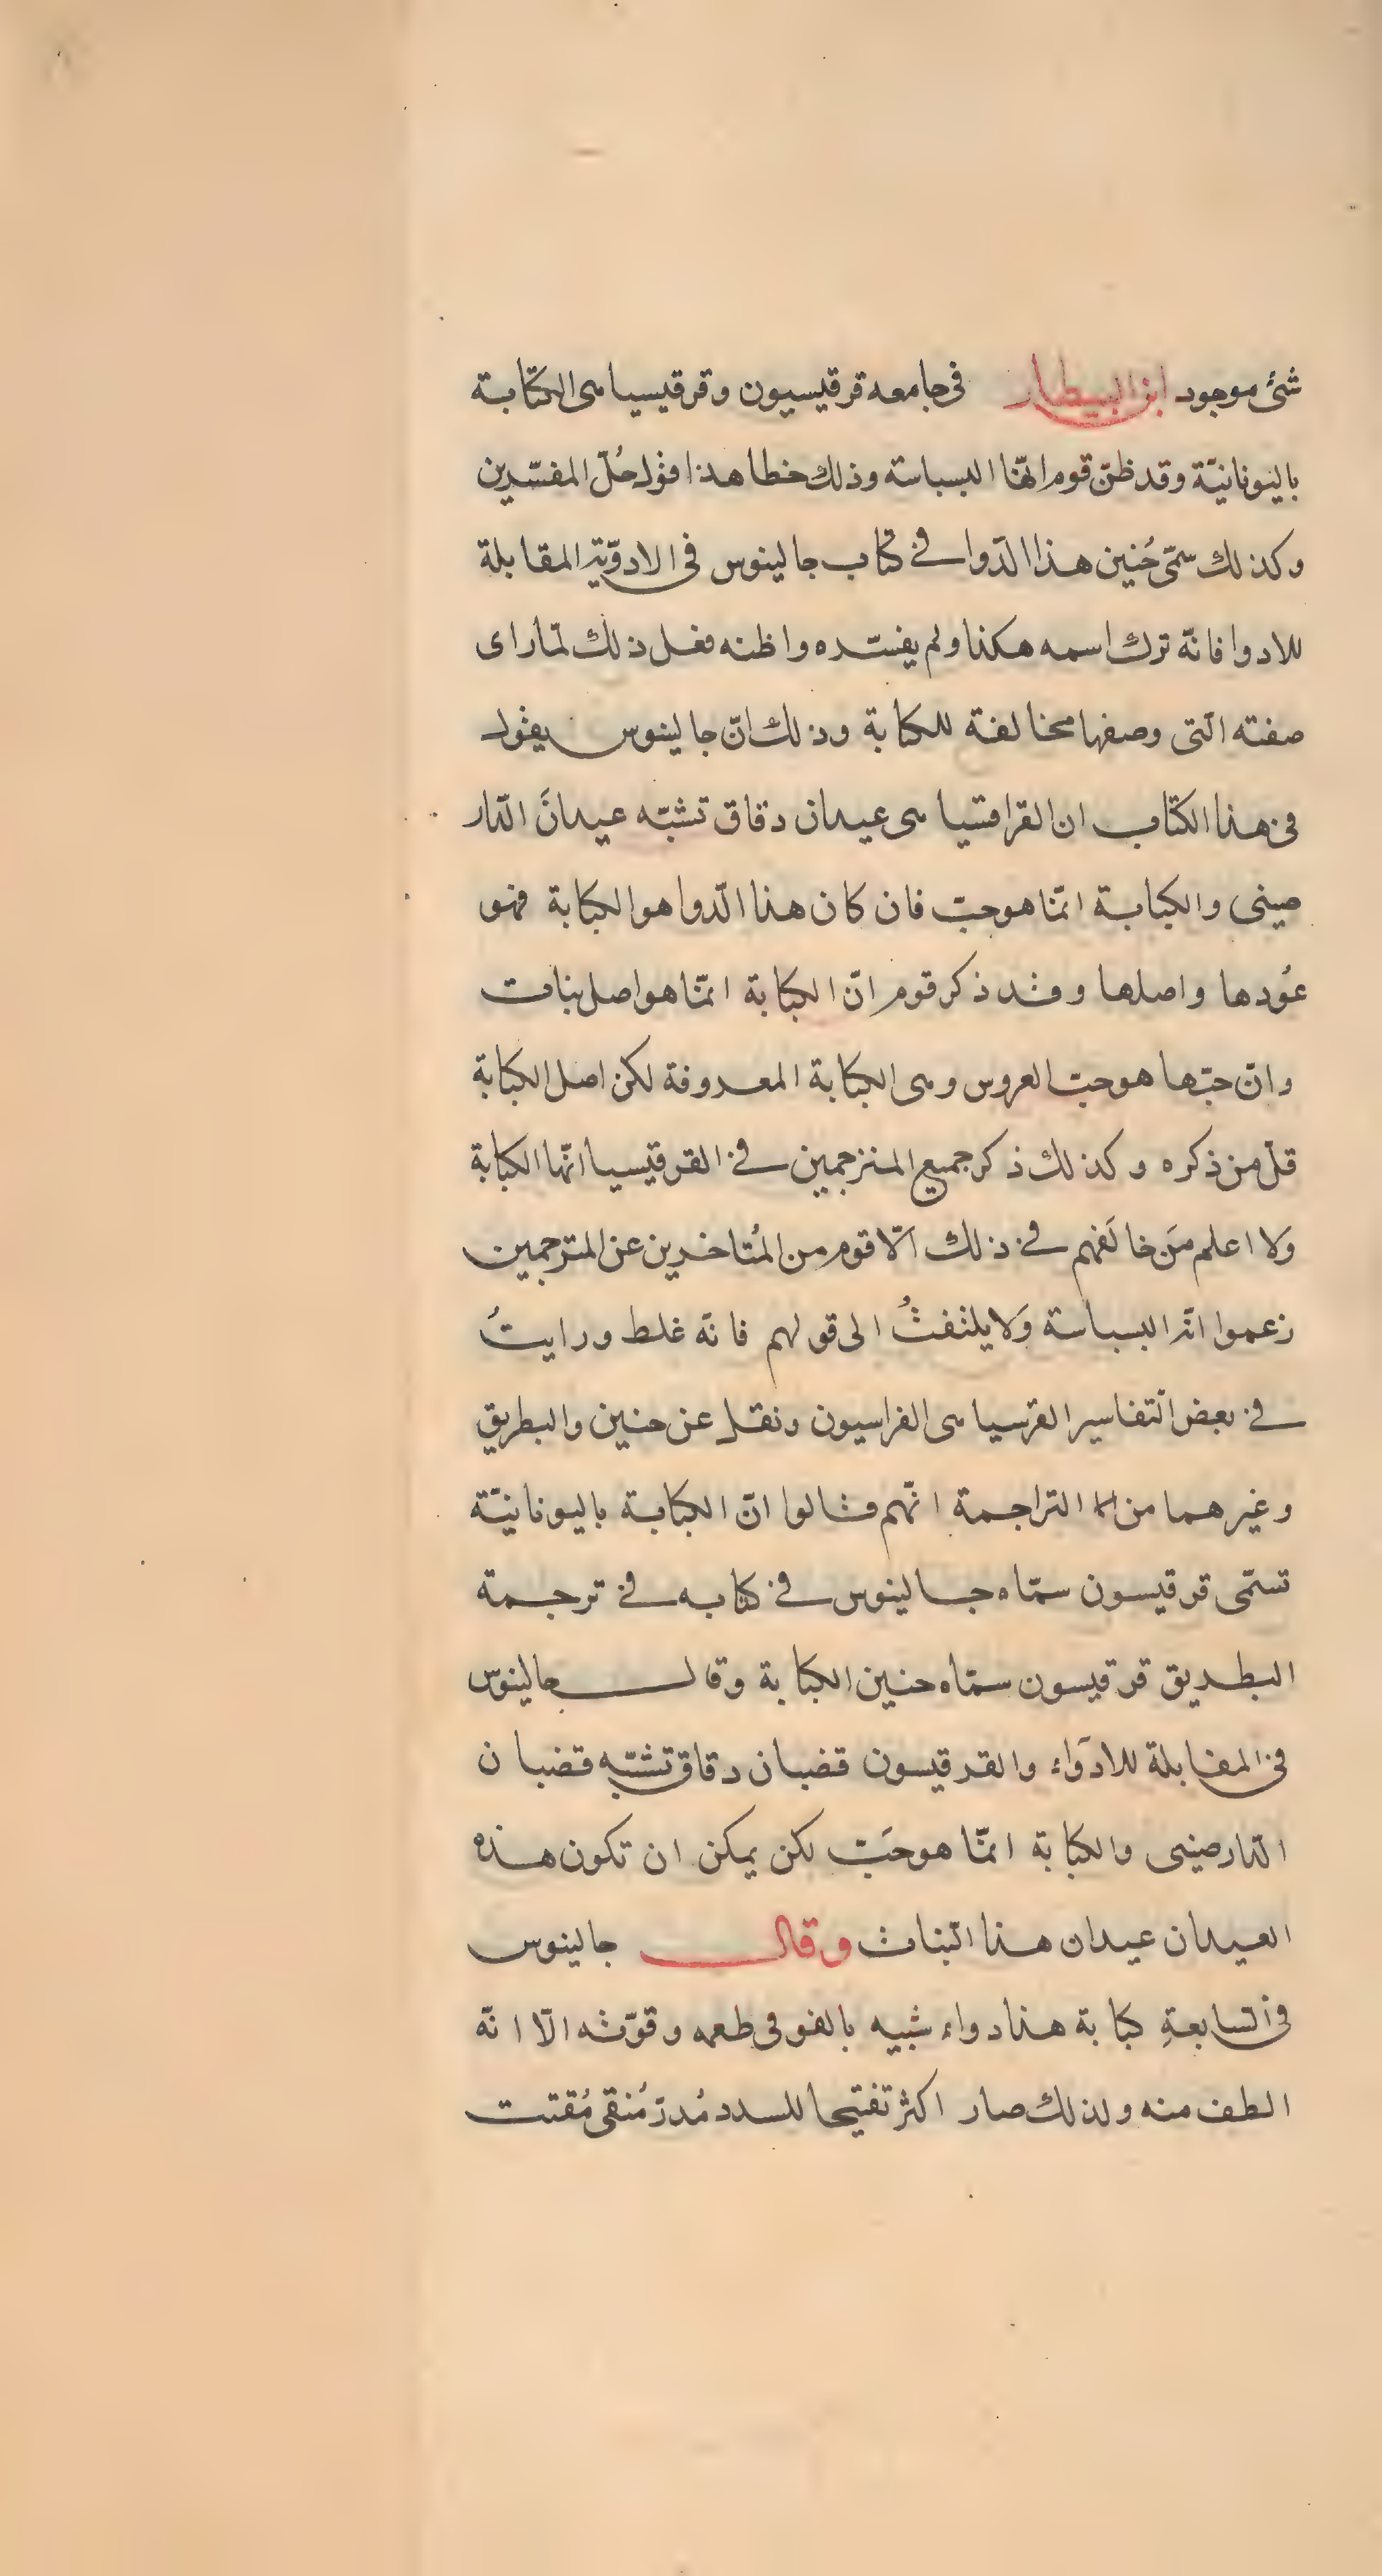 شئ موجود ابن البيطار فى جامعه قرقيسيون وقرقيسيا هى الكبابة
باليونانيّة وقد ظنّ قوم انّها البسباسة وذلك خطا هذا قول جُلّ المفسّرين
وكذلك سمّى حُنين هذا الدّوا فى كتاب جالينوس فى الادوّية المقابلة
للادوا فانّه ترك اسمه هكذا ولم يفسّره واظنه فعل ذلك لمّا راى
صفته الّتى وصفها مخالفة للكبابة وذلك انّ جالينوس يقول
فى هذا الكتاب ان القرافتيا هى عيدان دقاق تشبّه عيدانَ الدّار
صينى والكبابة انمّا هو حبّ فان كان هذا الدّوا هو الكبابة فهو
عُودها واصلها وقد ذكر قوم انّ الكبابة انمّا هو اصل نبات
وانّ حبّها هو حبّ العروس وهى الكبابة المعروفة لكن اصل الكبابة
قلّ من ذكره وكذلك ذكر جميع المترجمين فى القرقيسيا انّها الكبابة
وَلا اعلم مَن خالَفهم فى ذلك الّا قوم من المُتاخرين عن المترجمين
زعموا انّه البسباسة وَلا يلتفتُ الى قولهم فانّه غلط ورايتُ
فى بعض التّفاسير القرسيا هى الفراسيون ونقل عن حنين والبطريق
وغيرهما من التراجمة انّهم قالوا انّ الكبابة باليونانيّة
تسمّى قرقيسون سمّاه جالينوس فى كتابه فى ترجمة
البطريق قرقيسون سمّاه حنين الكبابة وقال جالينوس
فى المقابلة للادَوَاء والقرقيسون قضبان دقاق تشبّه قضبان
الدّارصينى والكبابة انمّا هو حَبّ لكن يمكن ان تكون هذه
العيدان عيدان هذا النّبات وقال جالينوس
فى السّابعةِ كبابة هذا دواء شبيه بالفو فى طعمه وقوّته الّا انّه
الطف منه ولذلك صار اكثر تفتيحا للسدد مُدرّ مُنقى مُفتت